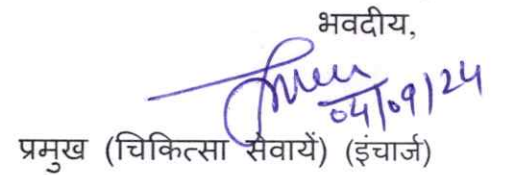 भवदीय,
04/09/24
प्रमुख (चिकित्सा सेवायें) (इंचार्ज)